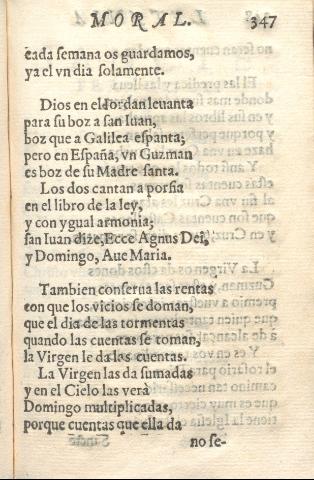 MORAL. 347
cada semana os guardamos,
ya el vn dia solamente.
Dios en el Iordan leuanta
para su boz a san Iuan,
boz que a Galilea espanta;
pero en España, vn Guzman
es boz de su Madre santa.
Los dos cantan a porfia
en el libro de la ley,
y con ygual armonia;
san Iuan dize, Ecce Agnus Dei,
y Domingo, Aue Maria.
Tambien conserua las rentas
con que los vicios se doman,
que el dia de las tormentas
quando las cuentas se toman,
la Virgen le da las cuentas.
La Virgen las da sumadas
y en el Cielo las verà
Domingo multiplicadas,
porque cuentas que ella da
no se-